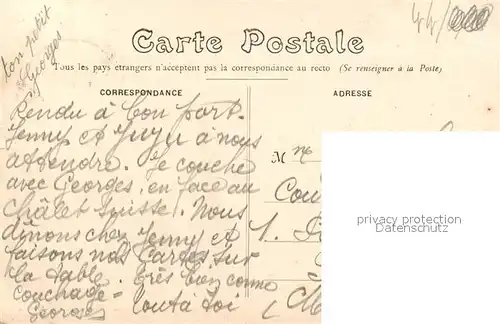 ton petit
Georges
44/
Carte Postale
Tous les pays étrangers n'acceptent pas la correspondance au recto (Se renseigner à la Poste)
CORRESPONDANCE
ADRESSE
Rendu à bon port.
Jenny et Juju à nous
attendre. Je couche
avec Georges, en face au
Châlet Suisse. Nous
dînons chez Jenny et
faisons nos Cartes sur
la table. Très bien comme
couchage =
tout à toi
Georges
M me
Cou
1.
(M
privacy protection